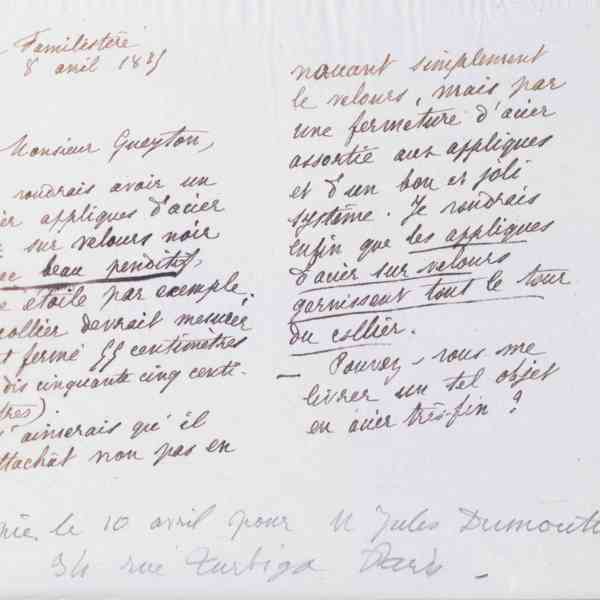 Familistère
8 avril 18
Monsieur Gueyton,
voudrais avoir un
appliques d'acier
sur velours noir
beau penditif,
étoile par exemple.
collier devrait mesurer
fermé 55 centimètres
dis cinquante cinq centi-
tres).
'aimerais qu'il
ttachât non pas en
nouant simplement
le velours, mais par
une fermeture d'acier
assortie aux appliques
et d'un bon et joli
système. Je voudrais
enfin que les appliques
d'acier sur velours
garnissent tout le tour
du collier.
— Pouvez-vous me
livrer un tel objet
en acier très-fin ?
le 10 avril pour M Jules Dumouth
34 rue Turbigo Paris _